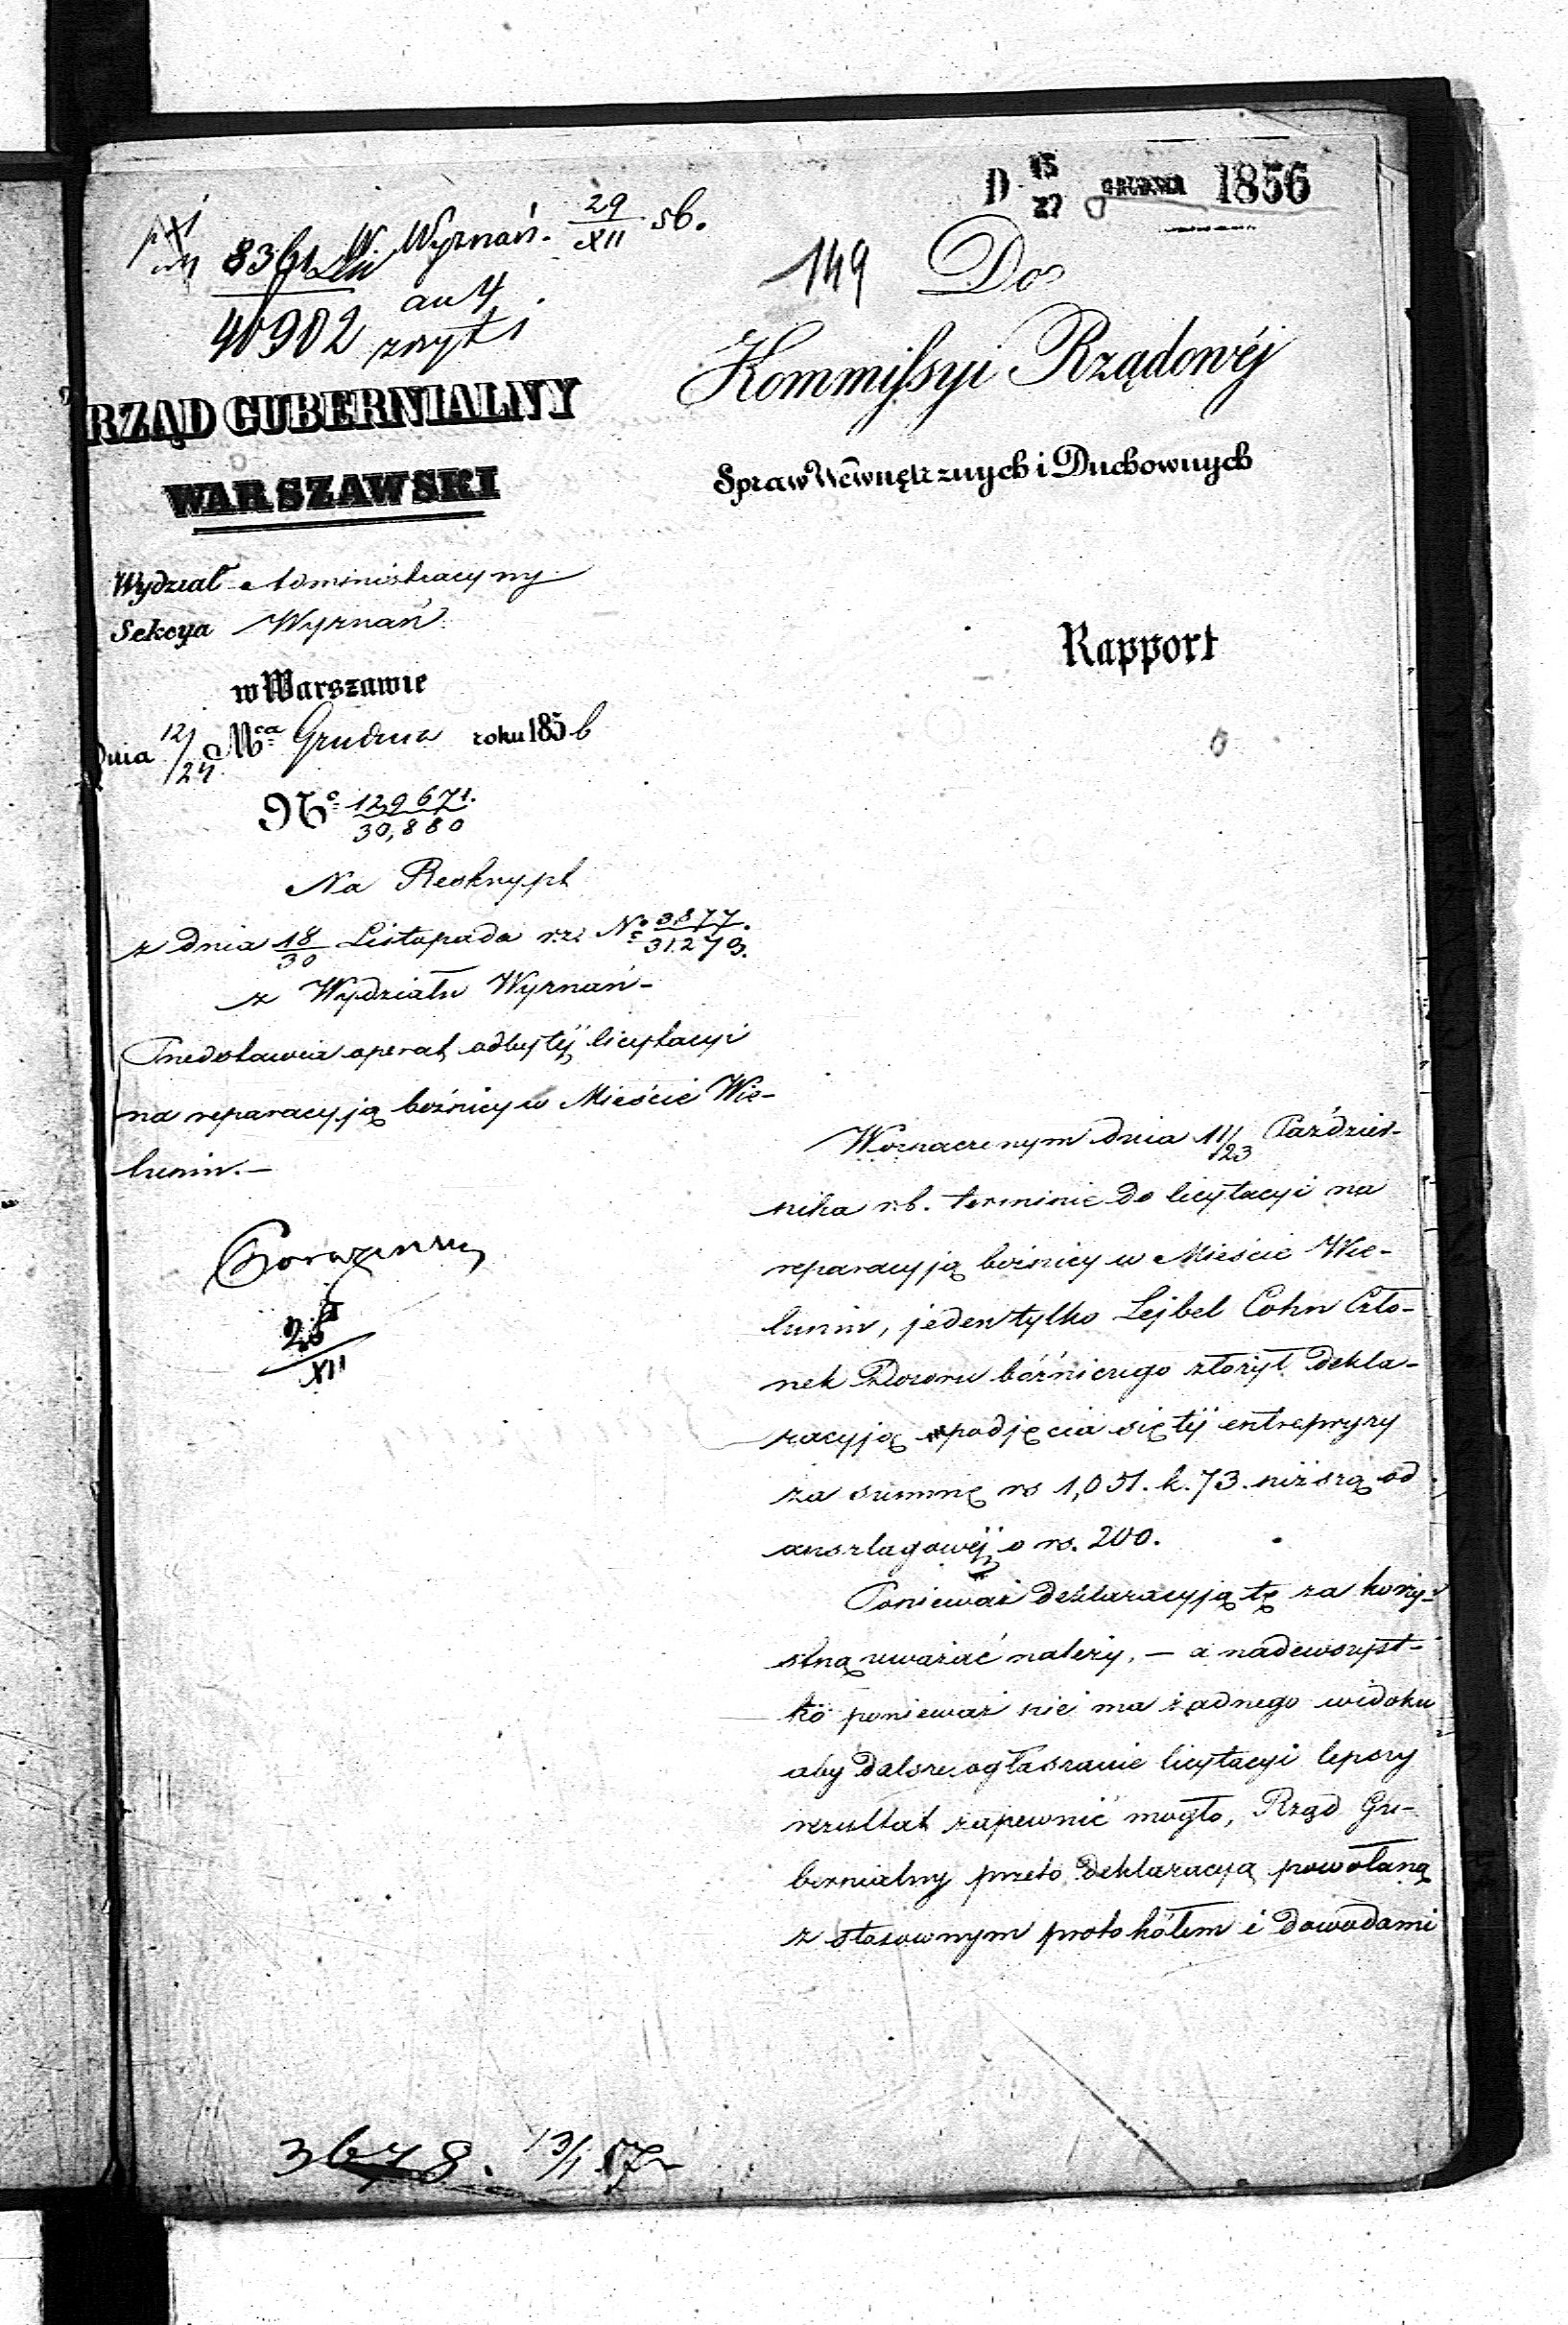 D 15/27 GRUDNIA 1856
8361 W Wyznań. 29/XII 56.
40902 au 4
149 Do
Kommissyi Rządowéj
RZĄD GUBERNIALNY
Spraw Wewnętrznych i Duchownych
WARSZAWSKI
Wydział Administracyny
Sekcya Wyznań
Rapport
w Warszawie
Dnia 12/24 Mca Grudnia roku 1856
No 129671./30,880
Na Reskrypt
z dnia 18/30 Listopada r.z. No 3877./31279.
z Wydziału Wyznań-
Przedstawia operat odbytéj licytacyi
na reparacyją bóźnicy w Mieście Wie-
luniu.—
25/XII
W oznaczonym dnia 11/23 Paździer-
nika r.b. terminie do licytacyi na
reparacyją bożnicy w Mieście Wie-
luniu, jeden tylko Lejbel Cohn Czło-
nek Dozoru bóźniczego złożył dekla-
racyją podjęcia się téj entrepryzy
za summę rs 1,051. k. 73. niższą od
anszlagowéj o rs. 200.
Ponieważ deklaracyją tę za korzy-
stną uważać należy, — a nadewszyst-
ko ponieważ nie ma żadnego widoku
aby dalsze ogłaszanie licytacyi lepszy
rezultat zapewnić mogło, Rząd Gu-
bernialny przeto deklaracyą powołaną
z stosownym protokółem i dowodami
3678. 13/1 57